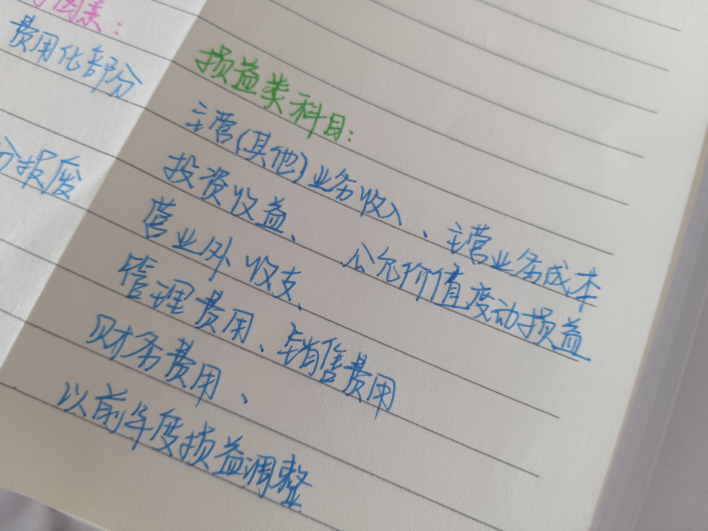 因素：
费用化部分
损益类科目：
主营(其他)业务收入、主营业务成本
投资收益、公允价值变动损益
分报废
营业外收支、
管理费用、销售费用
财务费用、
以前年度损益调整